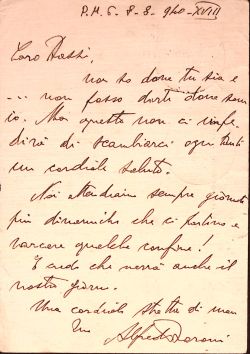 P.M. 6 - 8 - 8 - 940 - XVIII
Caro Rossi,
non so dove tu sia e
... non posso dirti dove son
io. Ma questo non ci impe
dirà di scambiarci ogni tanto
un cordiale saluto.
Noi attendiamo sempre giornate
più dinamiche che ci portino a
varcare qualche confine!
E credo che verrà anche il
nostro giorno.
Una cordiale stretta di mano
tuo
Alfredo